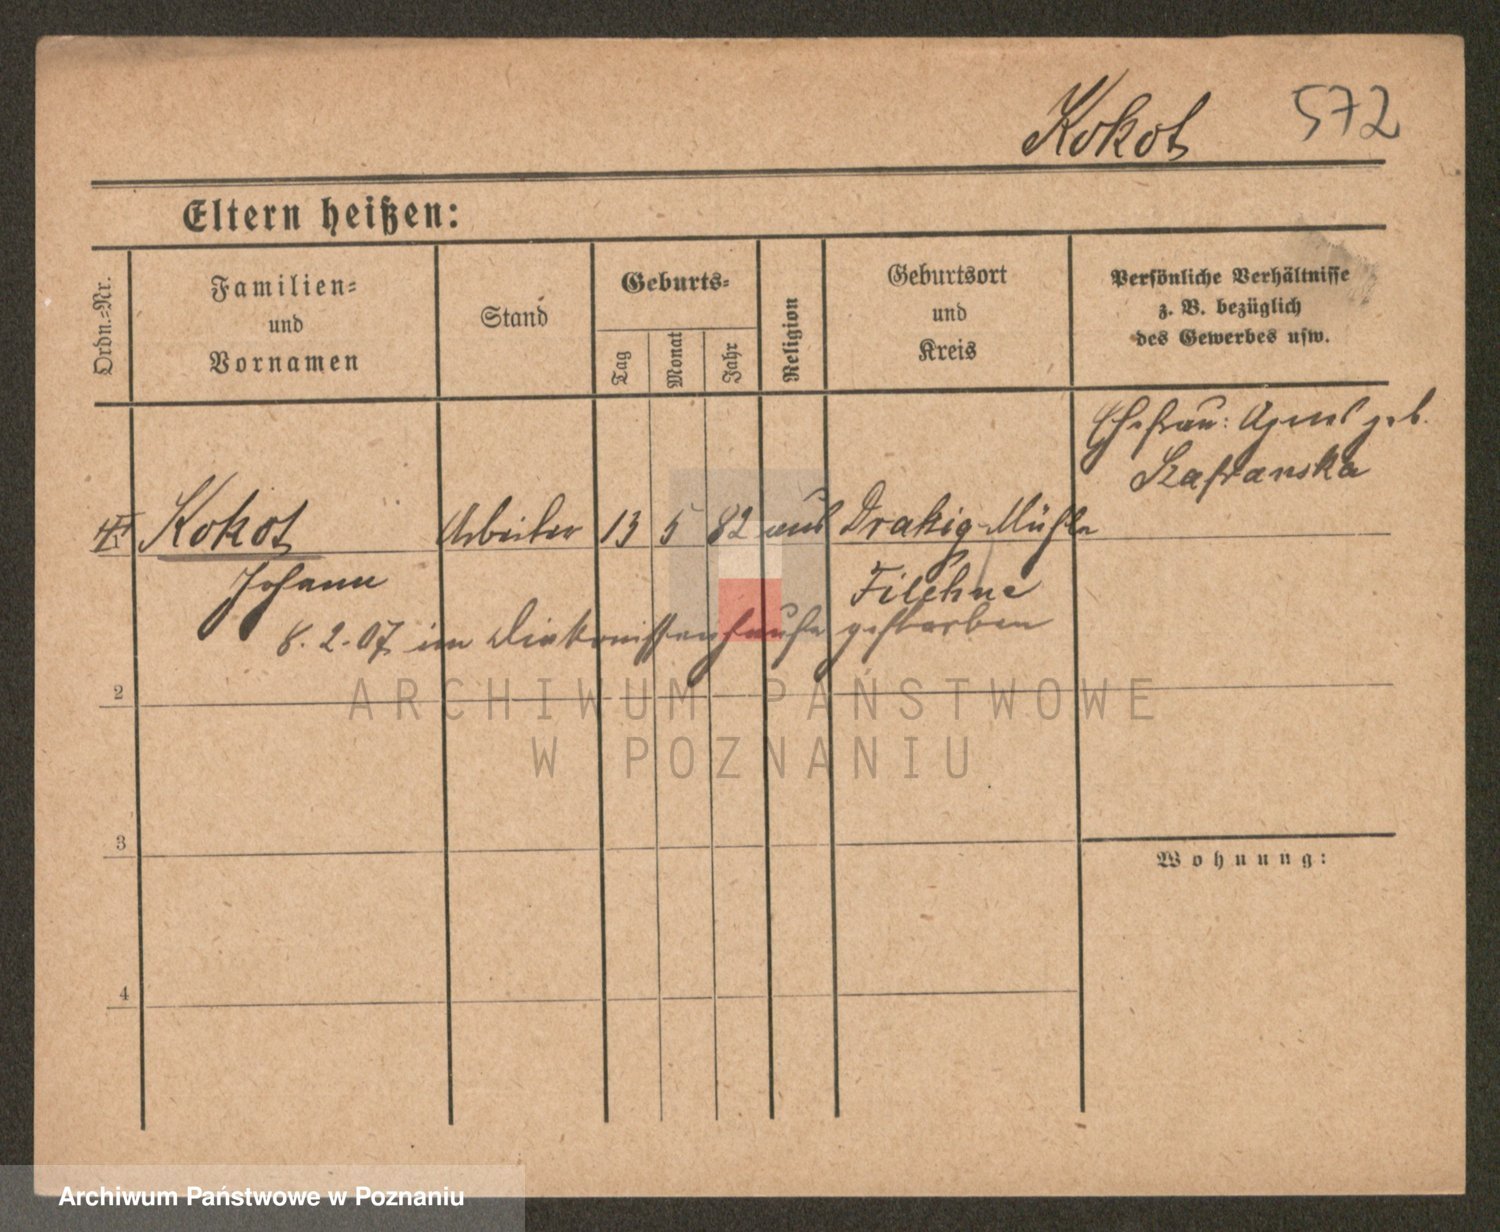 Kokot 572
Eltern heißen:
Ordn.=Nr.
Familien=
und
Vornamen
Stand
Geburts=
Tag
Monat
Jahr
Religion
Geburtsort
und
Kreis
Persönliche Verhältnisse
z. B. bezüglich
des Gewerbes usw.
Ehefrau: Agnes geb.
Szafranska
Kokot Arbeiter 13 5 82 aus Dratzig-Mühle
Johann Filehne
8. 2. 07 im Diakonissenhause gestorben
2
3
4
Wohnung:
ARCHIWUM PAŃSTWOWE
W POZNANIU
Archiwum Państwowe w Poznaniu